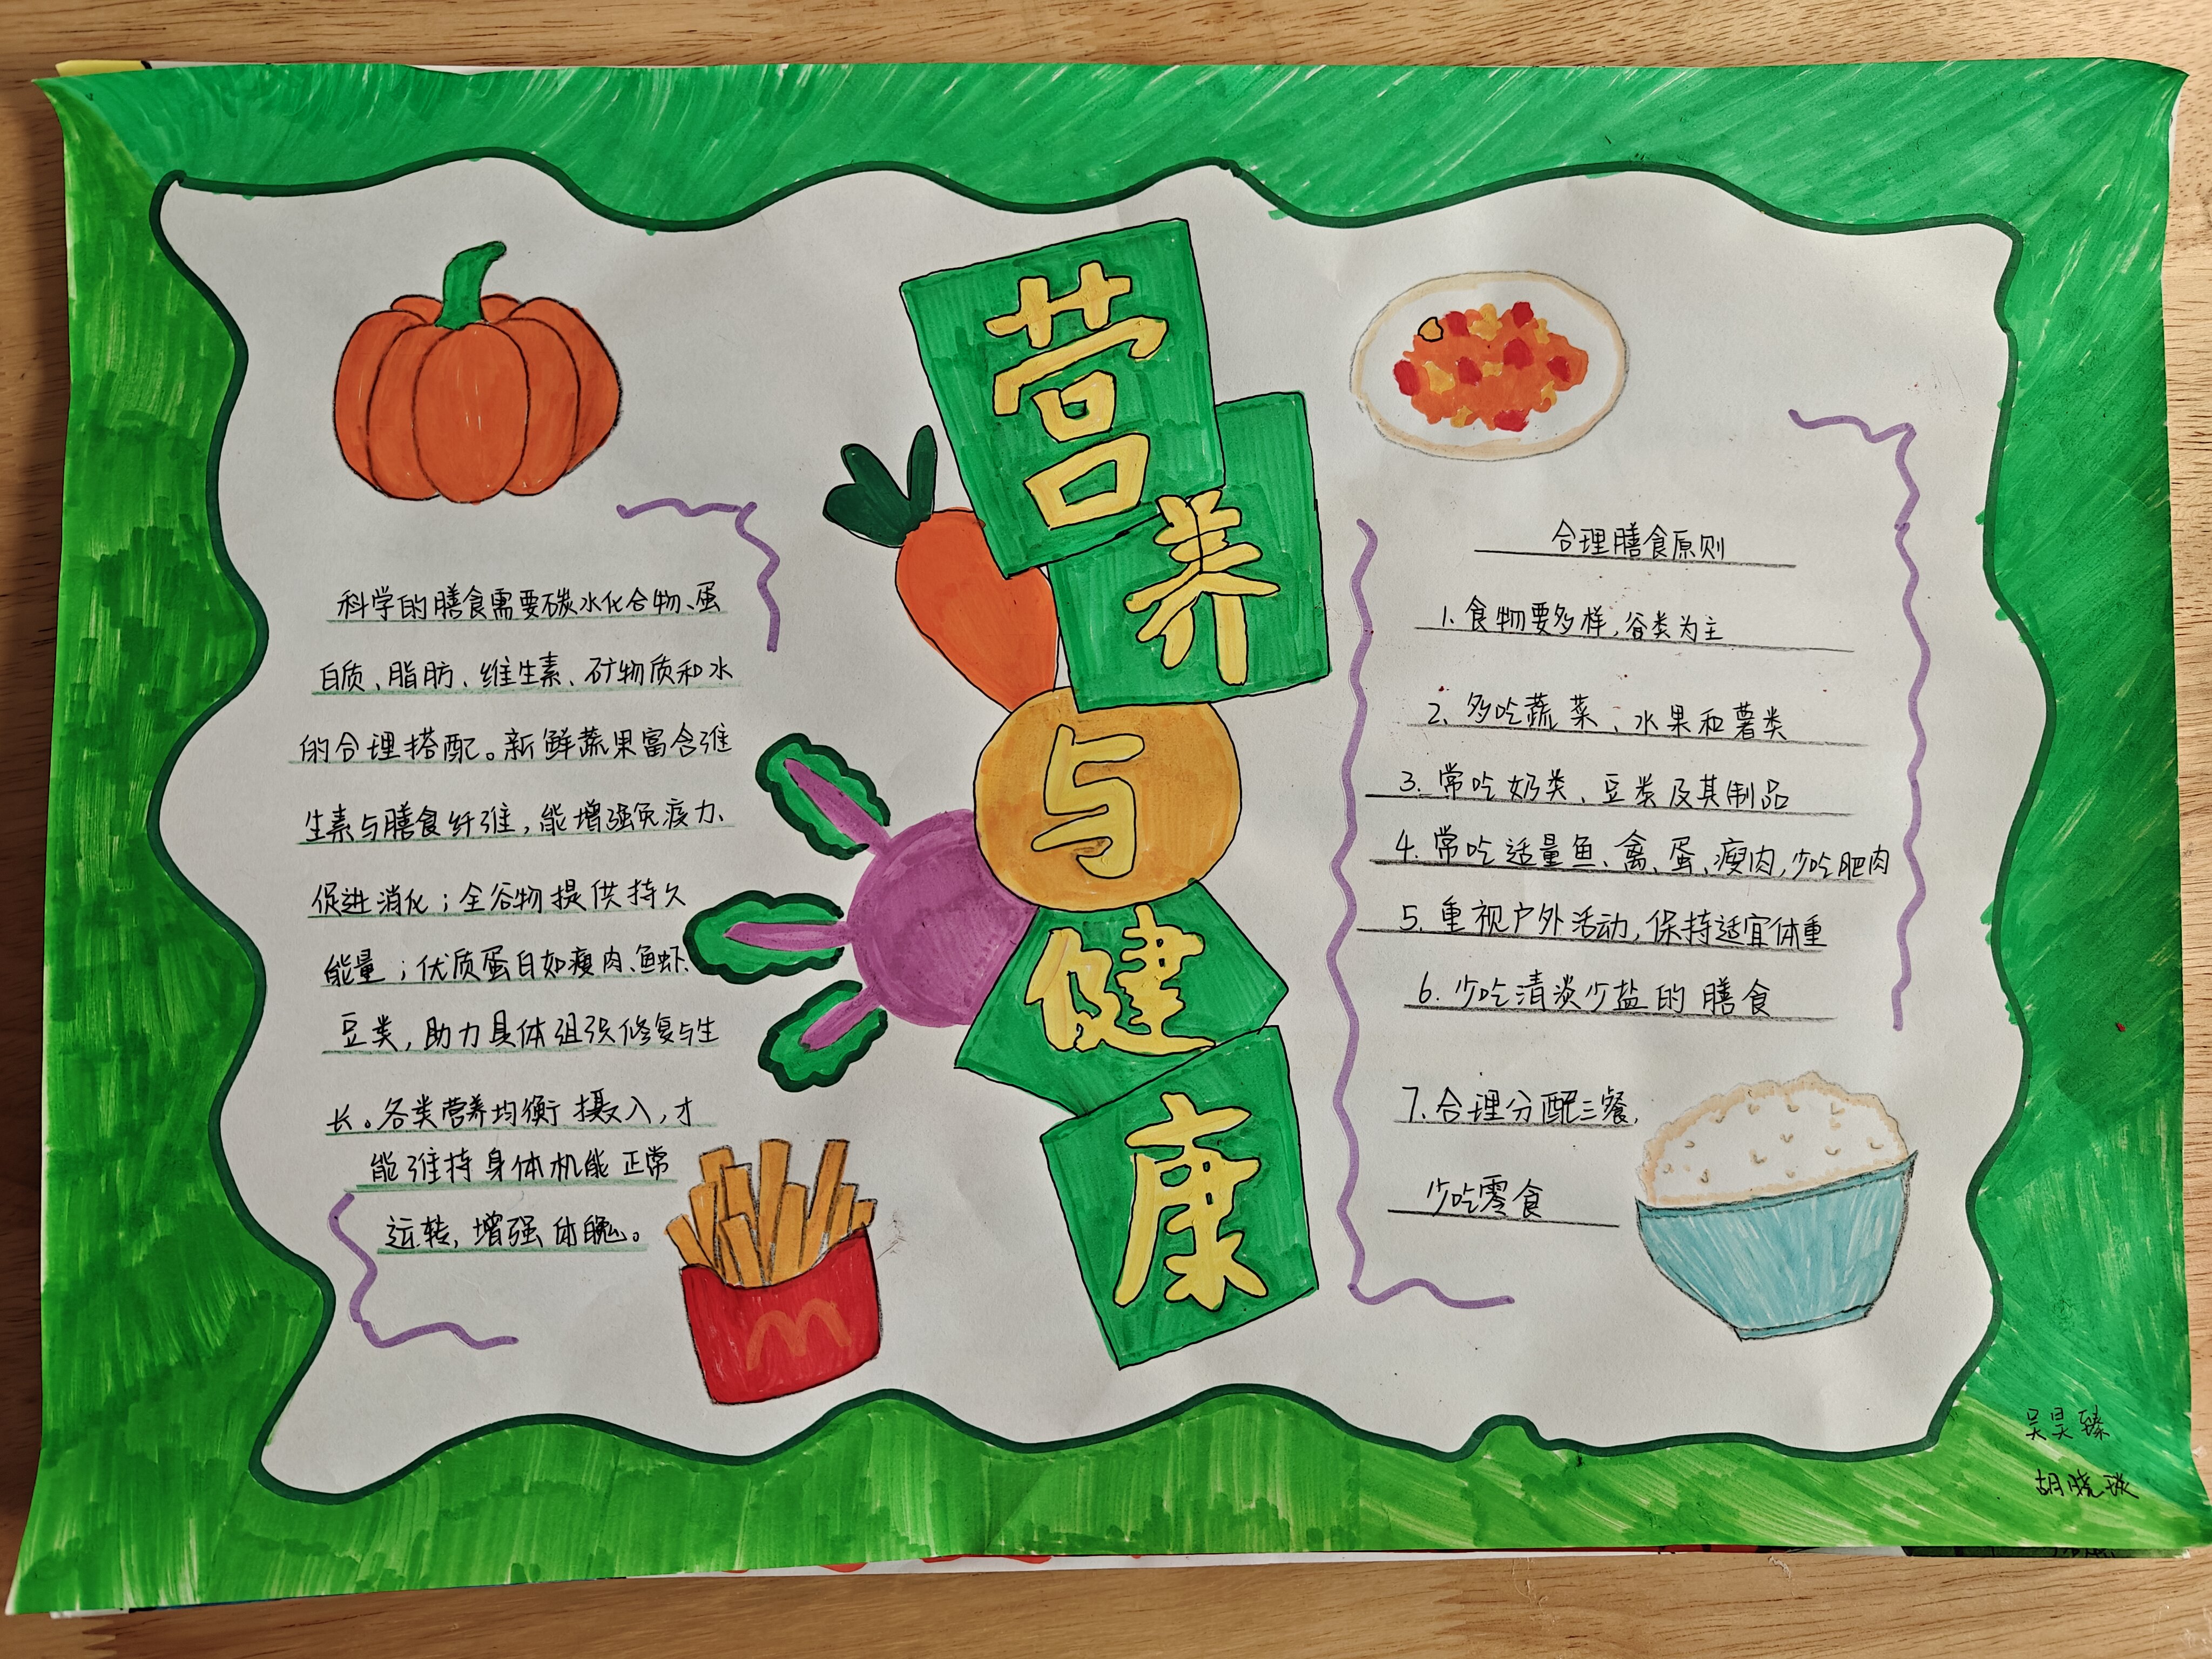 营养与健康
科学的膳食需要碳水化合物、蛋
白质、脂肪、维生素、矿物质和水
的合理搭配。新鲜蔬果富含维
生素与膳食纤维，能增强免疫力、
促进消化；全谷物提供持久
能量；优质蛋白如瘦肉、鱼虾、
豆类，助力具体组织修复与生
长。各类营养均衡摄入，才
能维持身体机能正常
运转，增强体魄。
合理膳食原则
1. 食物要多样，谷类为主
2、多吃蔬菜、水果和薯类
3. 常吃奶类、豆类及其制品
4. 常吃适量鱼、禽、蛋、瘦肉，少吃肥肉
5. 重视户外活动，保持适宜体重
6. 少吃清淡少盐的膳食
7. 合理分配三餐，
少吃零食
吴昊臻
胡晓琰